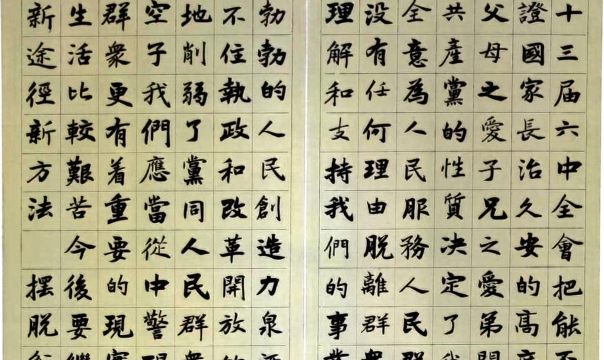 十三届六中全會把能
證國家長治久安的高
父母之愛子兄之愛弟
共產黨的性質決定了我
全意為人民服務人民群
没有任何理由脫離群眾
理解和支持我們的事業
勃勃的人民創造力泉
不住執政和改革開放
地削弱了黨同人民群眾
空子我們應當從中警
群眾更有着重要的現實
生活比較艱苦今後要繼
新途徑新方法 擺脫